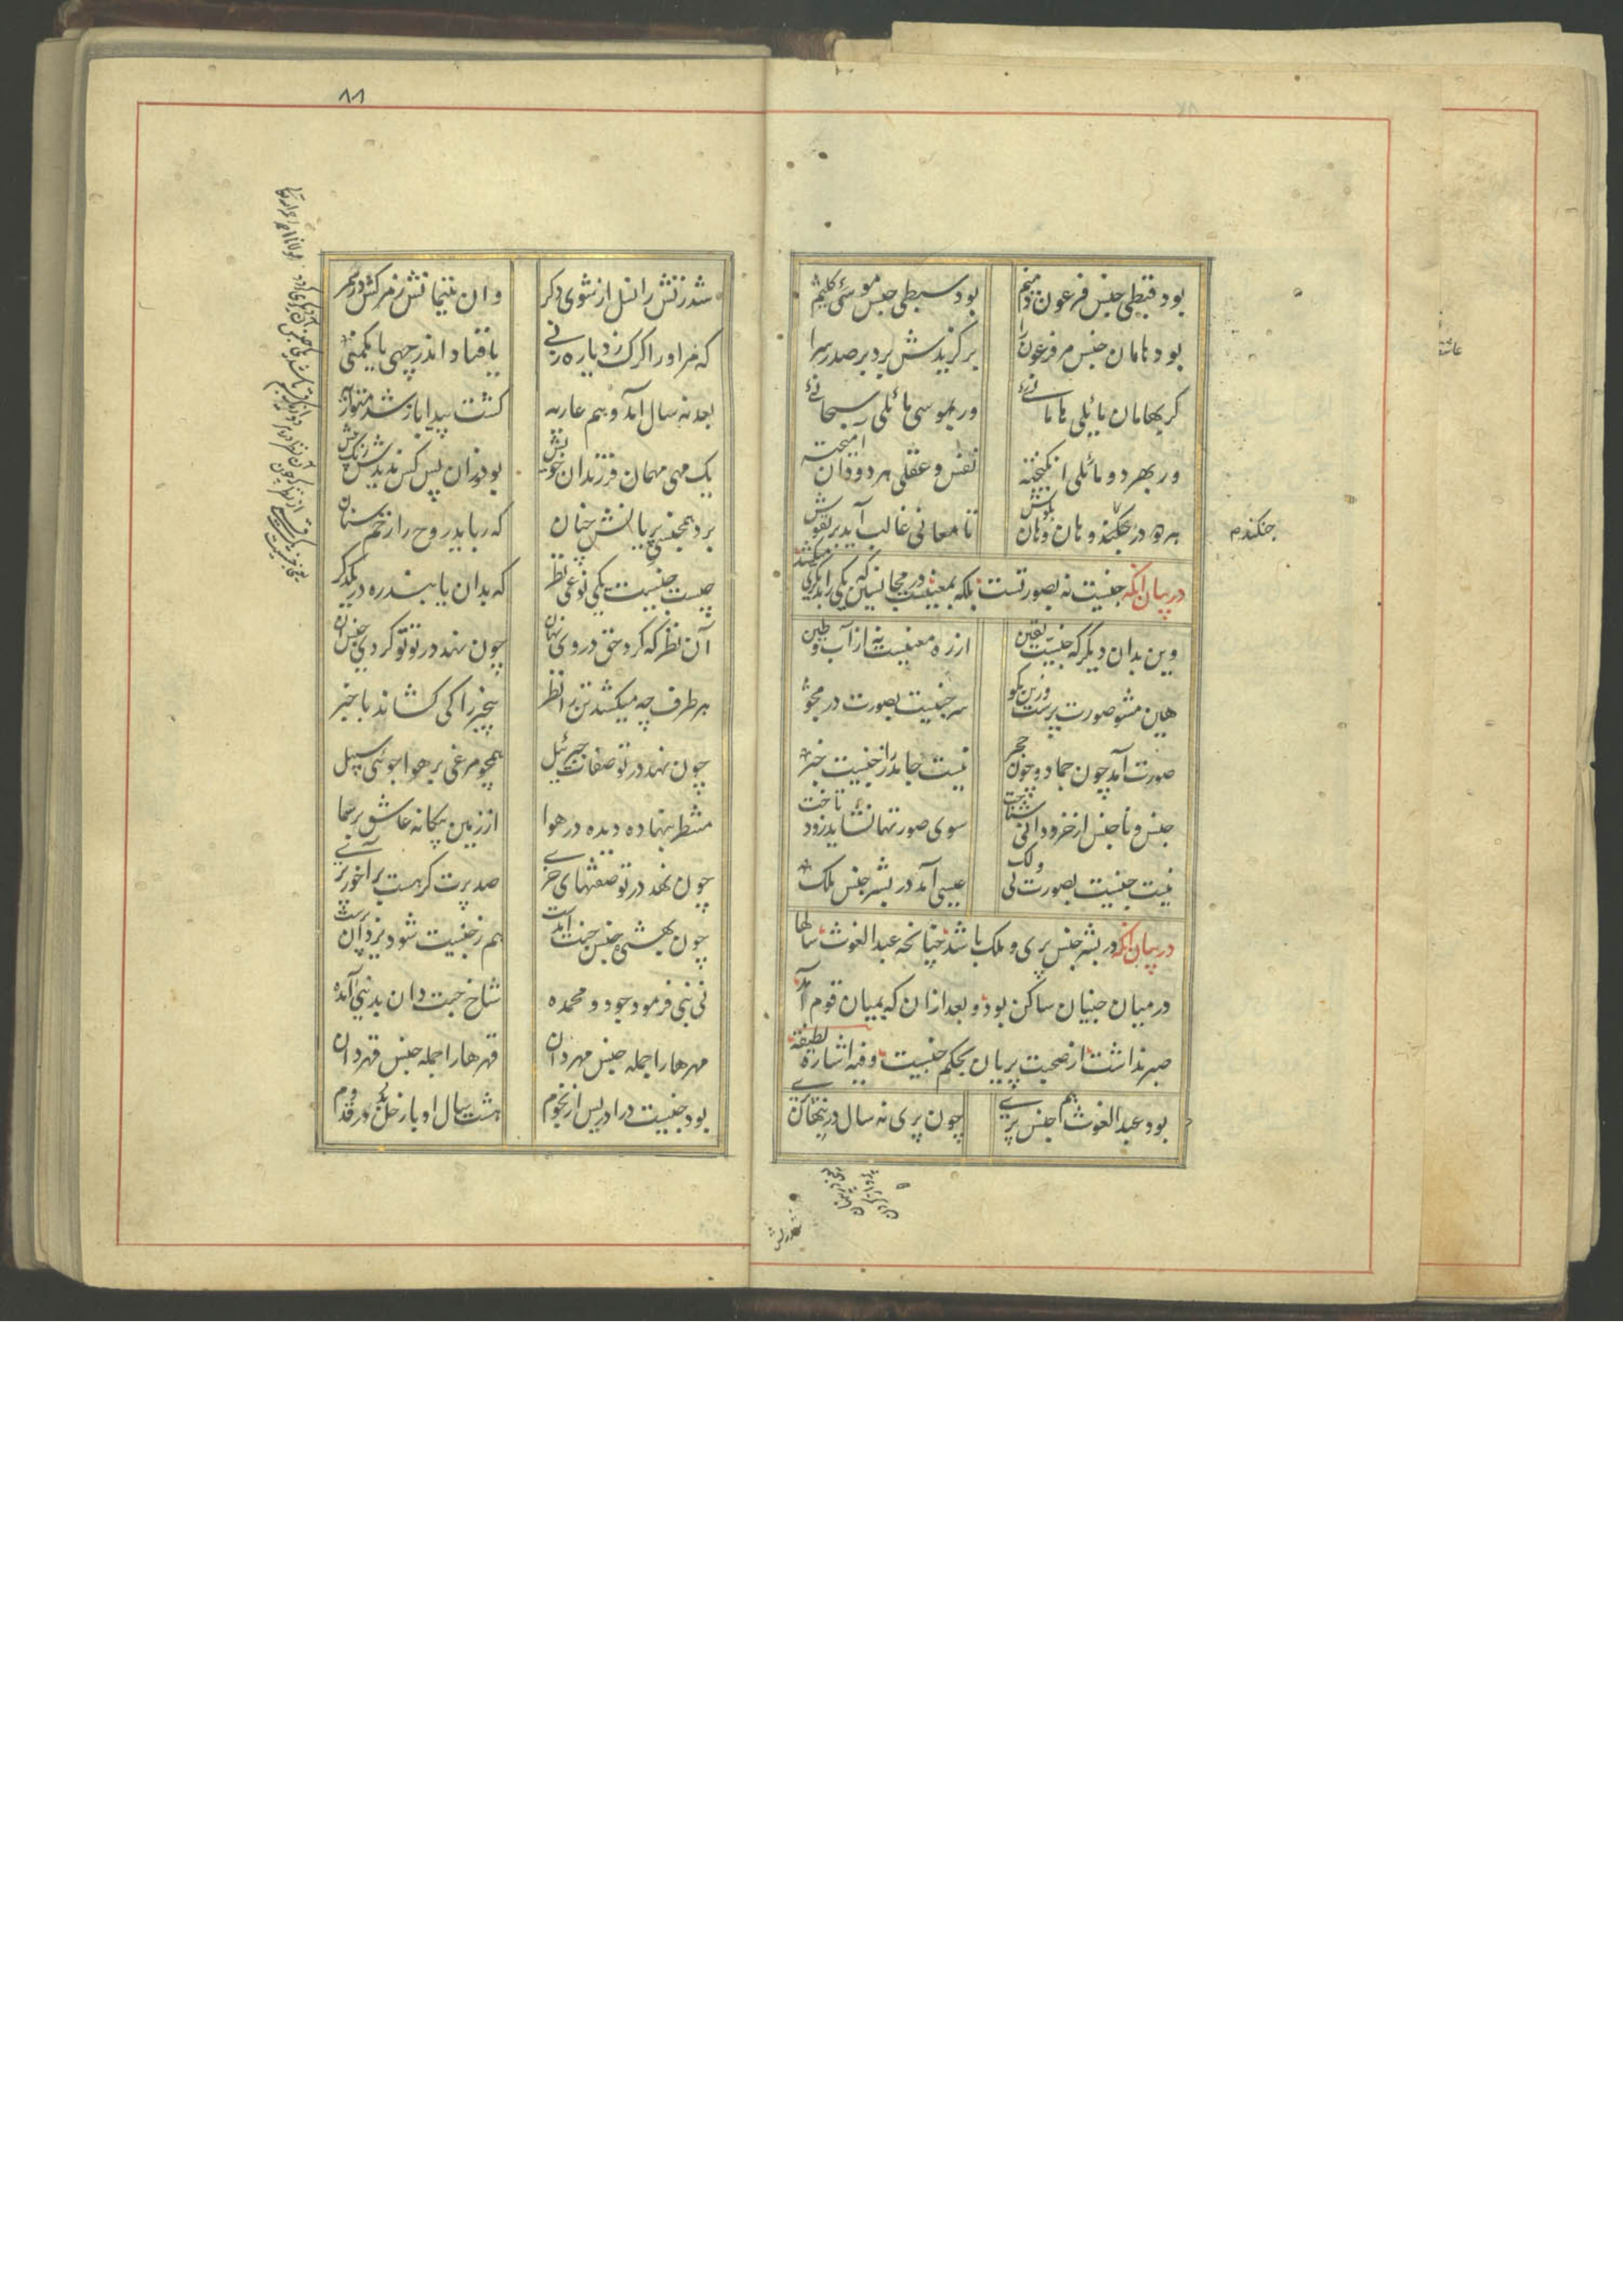 بود قبطی جنس فرعون ذمیم
بود سبطی جنس موسئ کلیم
بود هامان جنس مر فرعون را
برگزیدش برد بر صدر سرا
کر بهامان مایلی هامانئ
ور بموسی مائلی سبحانئ
ور بهر دو مائلی انکیخته
نفس و عقلی هر دو دان امیخته
هر دو در جنکند و هان و هان بکوش
تا معانی غالب آید بر نقوش
جنکندم
در بیان انکه جنسیت نه بصورتست بلکه بمعنیست در مجانسین که یکی را بدیکری میکشد
وین بدان دیکر که جنسیت یقین
از ره معنیست نه از آب و طین
هین مشو صورت پرست و زین مکو
سر جنسیت بصورت در مجو
صورت آمد چون جماد و چون حجر
نیست جامد را ز جنسیت خبر
جنس و ناجنس از خرد دانی شناخت
سوی صورتها نشاید زود تاخت
نیست جنسیت بصورت لی و لک
عیسی آمد در بشر جنس ملک
در بیان انکه در بشر جنس پری و ملک باشد چنانچه عبد الغوث سالها
در میان جنیان ساکن بود و بعد ازان که بمیان قوم آمد
صبر نداشت از صحبت پریان بحکم جنسیت و فیه اشارة لطیفة
بود عبد الغوث هم جنس پری
چون پری نه سال در پنهان
٨٨
شد زنش را نسل از شوی دکر
وان یتیمانش ز مرکش در سمر
که مر او را کرک زد یا ره زنی
یا فتاد اندر چهی یا مکمنی
بعد نه سال آمد و هم عاریه
کشت پیدا باز شد متواریه
یک مهی مهمان فرزندان خویش
بود زان پس کس ندیدش رنک بیش
برد همجنسی پریانش چنان
که رباید روح را زخم سنان
چیست جنسیت یکی نوعی نظر
که بدان یابند ره در یکدکر
آن نظر که کرد حق در وی نهان
چون نهد در تو تو کردی جنس آن
هر طرف چه میکشد تن را نظر
بیخبر را کی کشاند با خبر
چون نهد در تو صفات جبرئیل
همچو مرغی بر هوا جوئی سبیل
منتظر بنهاده دیده در هوا
از زمین بیکانه عاشق بر سما
چون نهد در تو صفتهای خری
صد پرت کر هست بر آخور پری
چون بهشتی جنس جنت آمدست
هم ز جنسیت شود یزدان پرست
نی نبی فرمود جود و محمده
شاخ جنت دان بدنیی آمده
مهرها را جمله جنس مهر دان
قهرها را جمله جنس قهر دان
بود جنسیت در ادریس از نجوم
هشت سال او با زحل بد در قدوم